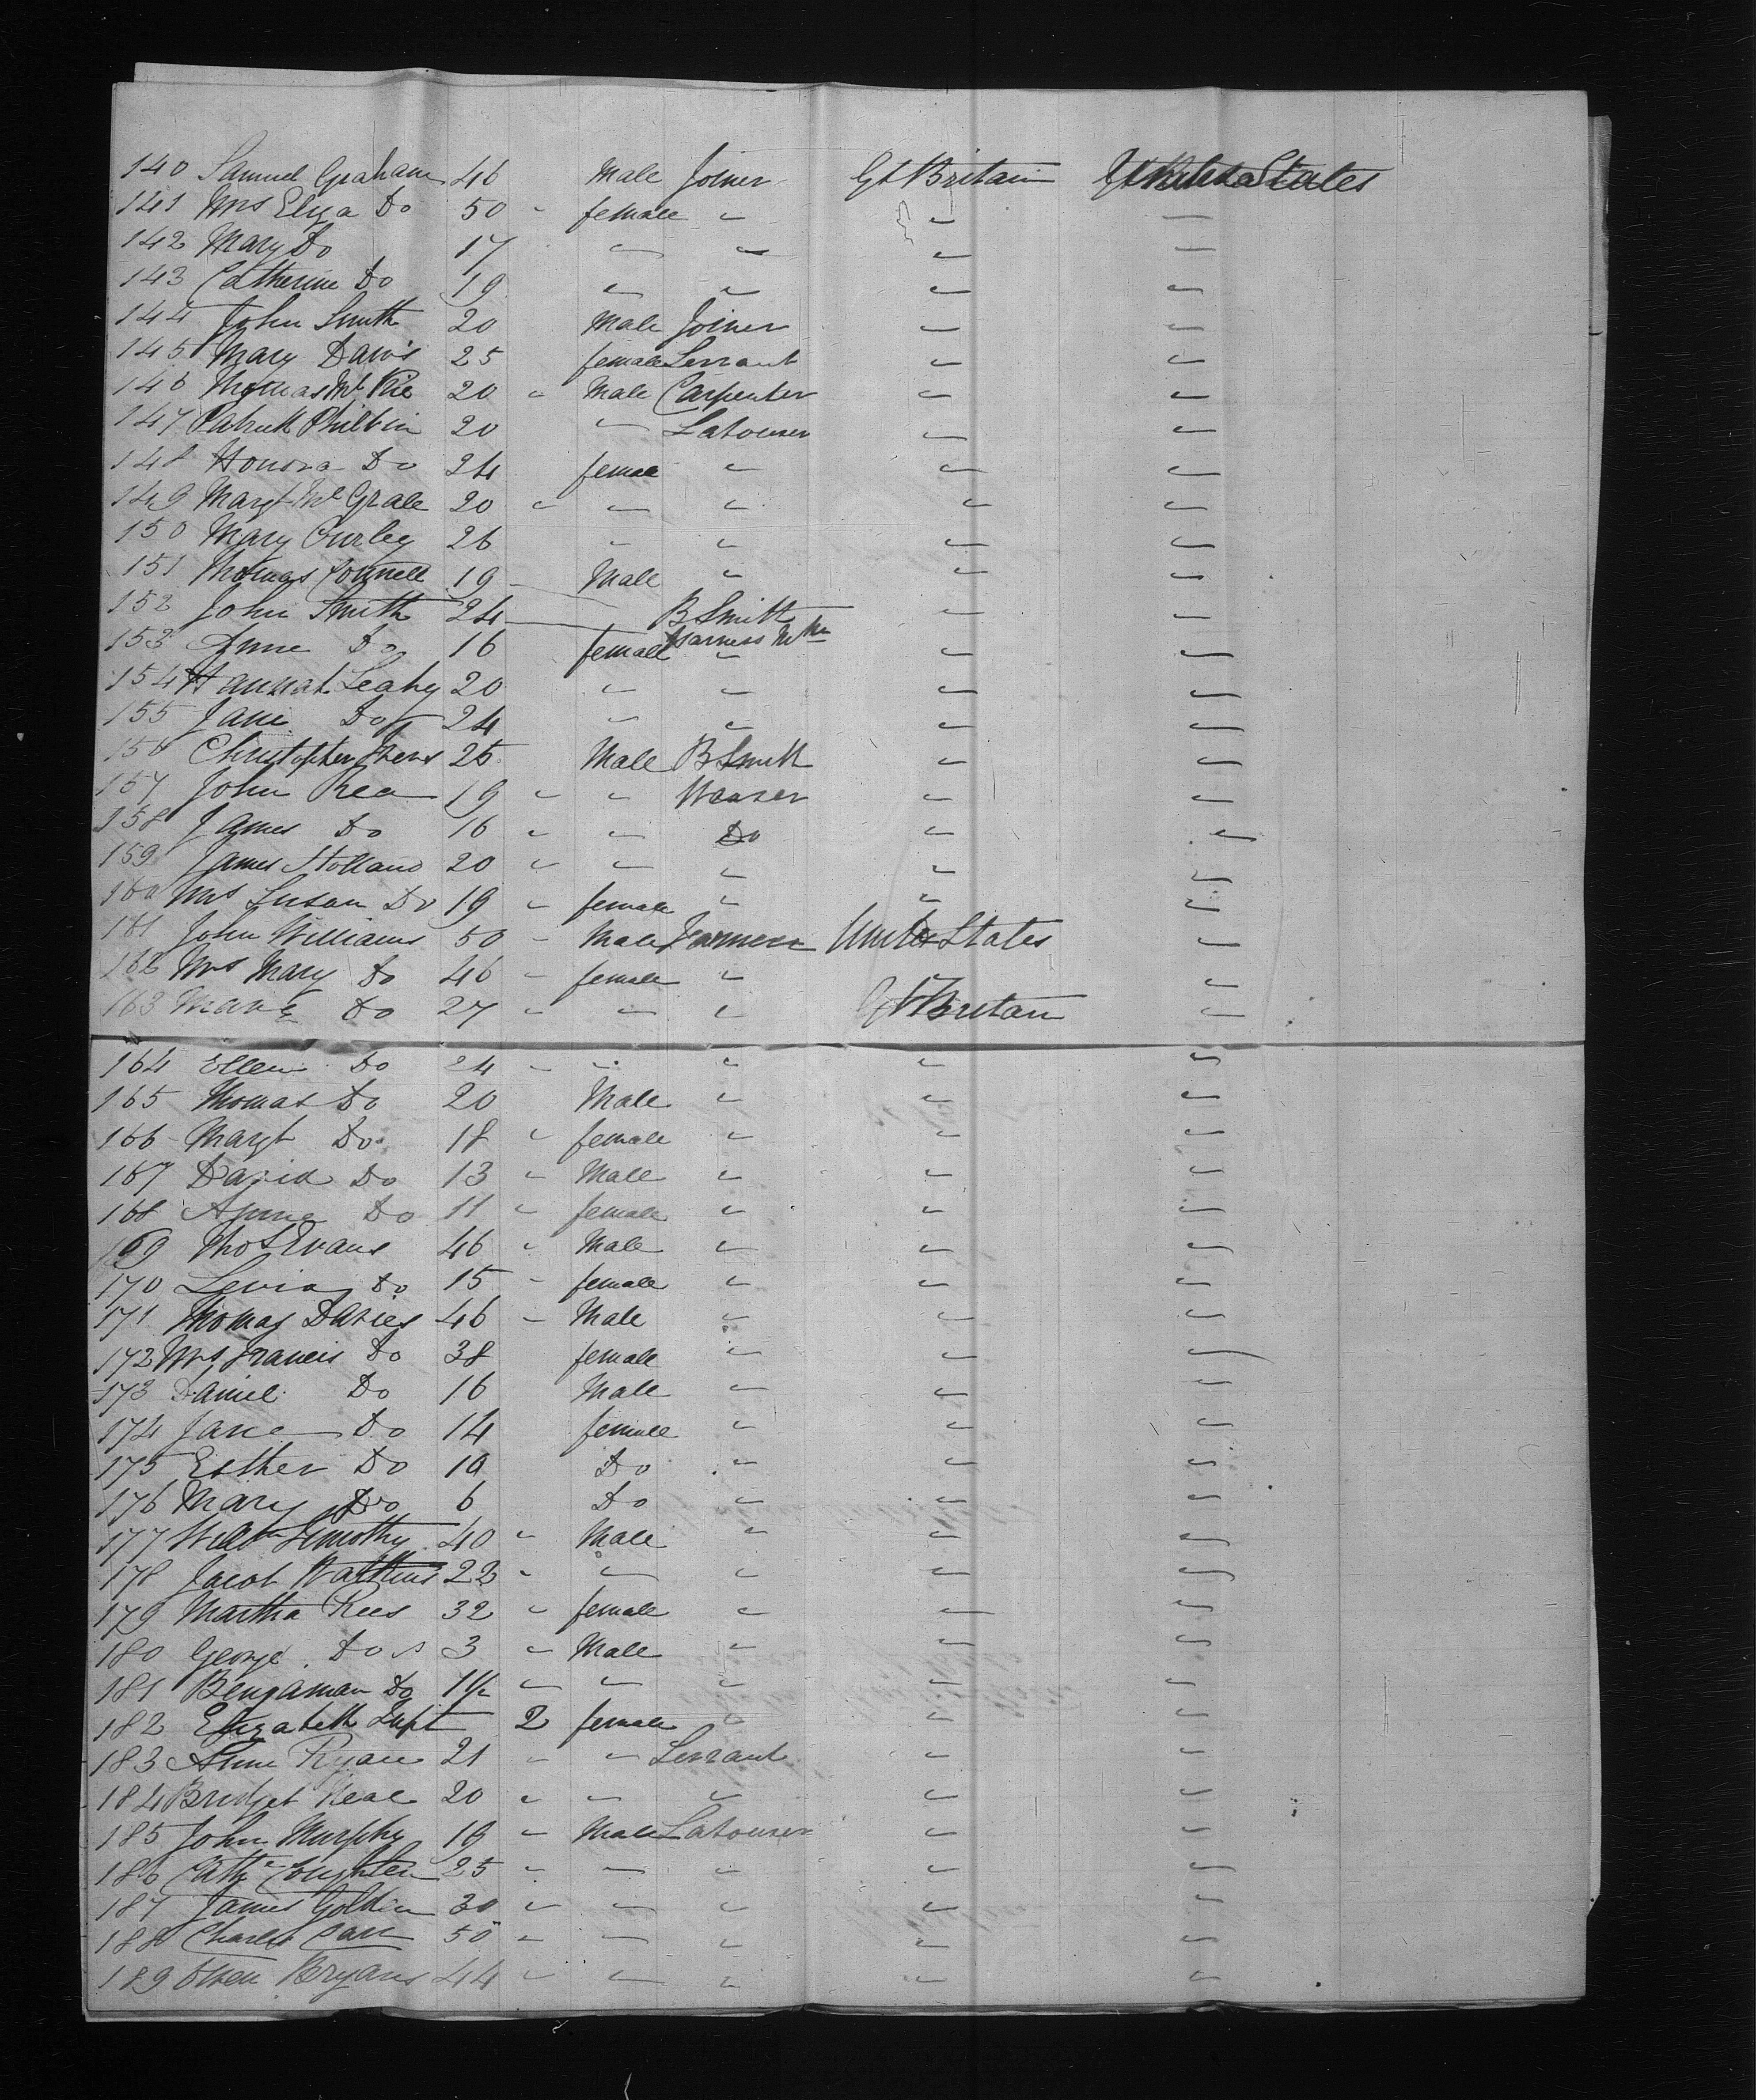 140 Samuel Graham 46 Male Joiner Gt Britain United States
141 Mrs Eliza Do 50 " female " " "
142 Mary Do 17 " " " "
143 Catherine Do 19 " " " "
144 John Smith 20 Male Joiner " "
145 Mary Davis 25 female Servant " "
146 Thomas Mc 20 " Male Carpenter " "
147 Patrick Philbin 20 " Labourer " "
148 Honora Do 24 female " " "
149 Margt Mc Grale 20 " " " " "
150 Mary Curley 26 " " " "
151 Thomas Connell 19 " Male " " "
152 John Smith 24 B Smith " "
153 Anne Do 16 female Harness Mkr " " "
154 Hannah Leahy 20 " " " "
155 Jane Do 24 " " " "
156 Christopher 25 Male B Smith " "
157 John Rea 19 " " Weaver " "
158 James Do 16 " " Do " "
159 James Holland 20 " " " " "
160 Mrs Susan Do 19 " female " " "
161 John Williams 50 " Male Farmer United States "
162 Mrs Mary Do 46 " female " "
163 Do 27 " " " Gt Britain "
164 Ellen Do 24 " " " " "
165 Thomas Do 20 Male " " "
166 Margt Do 18 " female " " "
167 David Do 13 " Male " " "
168 Anne Do 11 " female " " "
169 Thos Evans 46 " Male " " "
170 Levia Do 15 " female " " "
171 Thomas Davies 46 " Male " " "
172 Mrs Francis Do 38 female " " "
173 Daniel Do 16 Male " " "
174 Jane Do 14 female " " "
175 Esther Do 10 Do " " "
176 Mary Do 6 Do " " "
177 Willm Timothy 40 " Male " " "
178 Jacob Watkins 22 " " " " "
179 Martha Rees 32 " female " " "
180 George Do 3 " Male " " "
181 Benjaman Do 1½ " " " " "
182 Elizabeth 2 female " " "
183 Anne Ryan 21 " " Servant " "
184 Bridget Neal 20 " " " " "
185 John Murphy 19 " Male Labourer " "
186 Cathe 25 " " " " "
187 James Goldin 30 " " " " "
188 Charles Carr 50 " " " " "
189 Owen Bryans 44 " " " " "